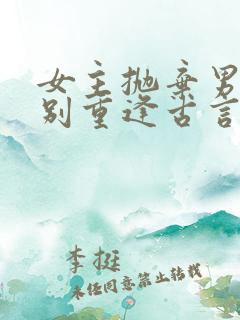 女主抛弃男
别重逢古言
李挺
未经同意禁止转载